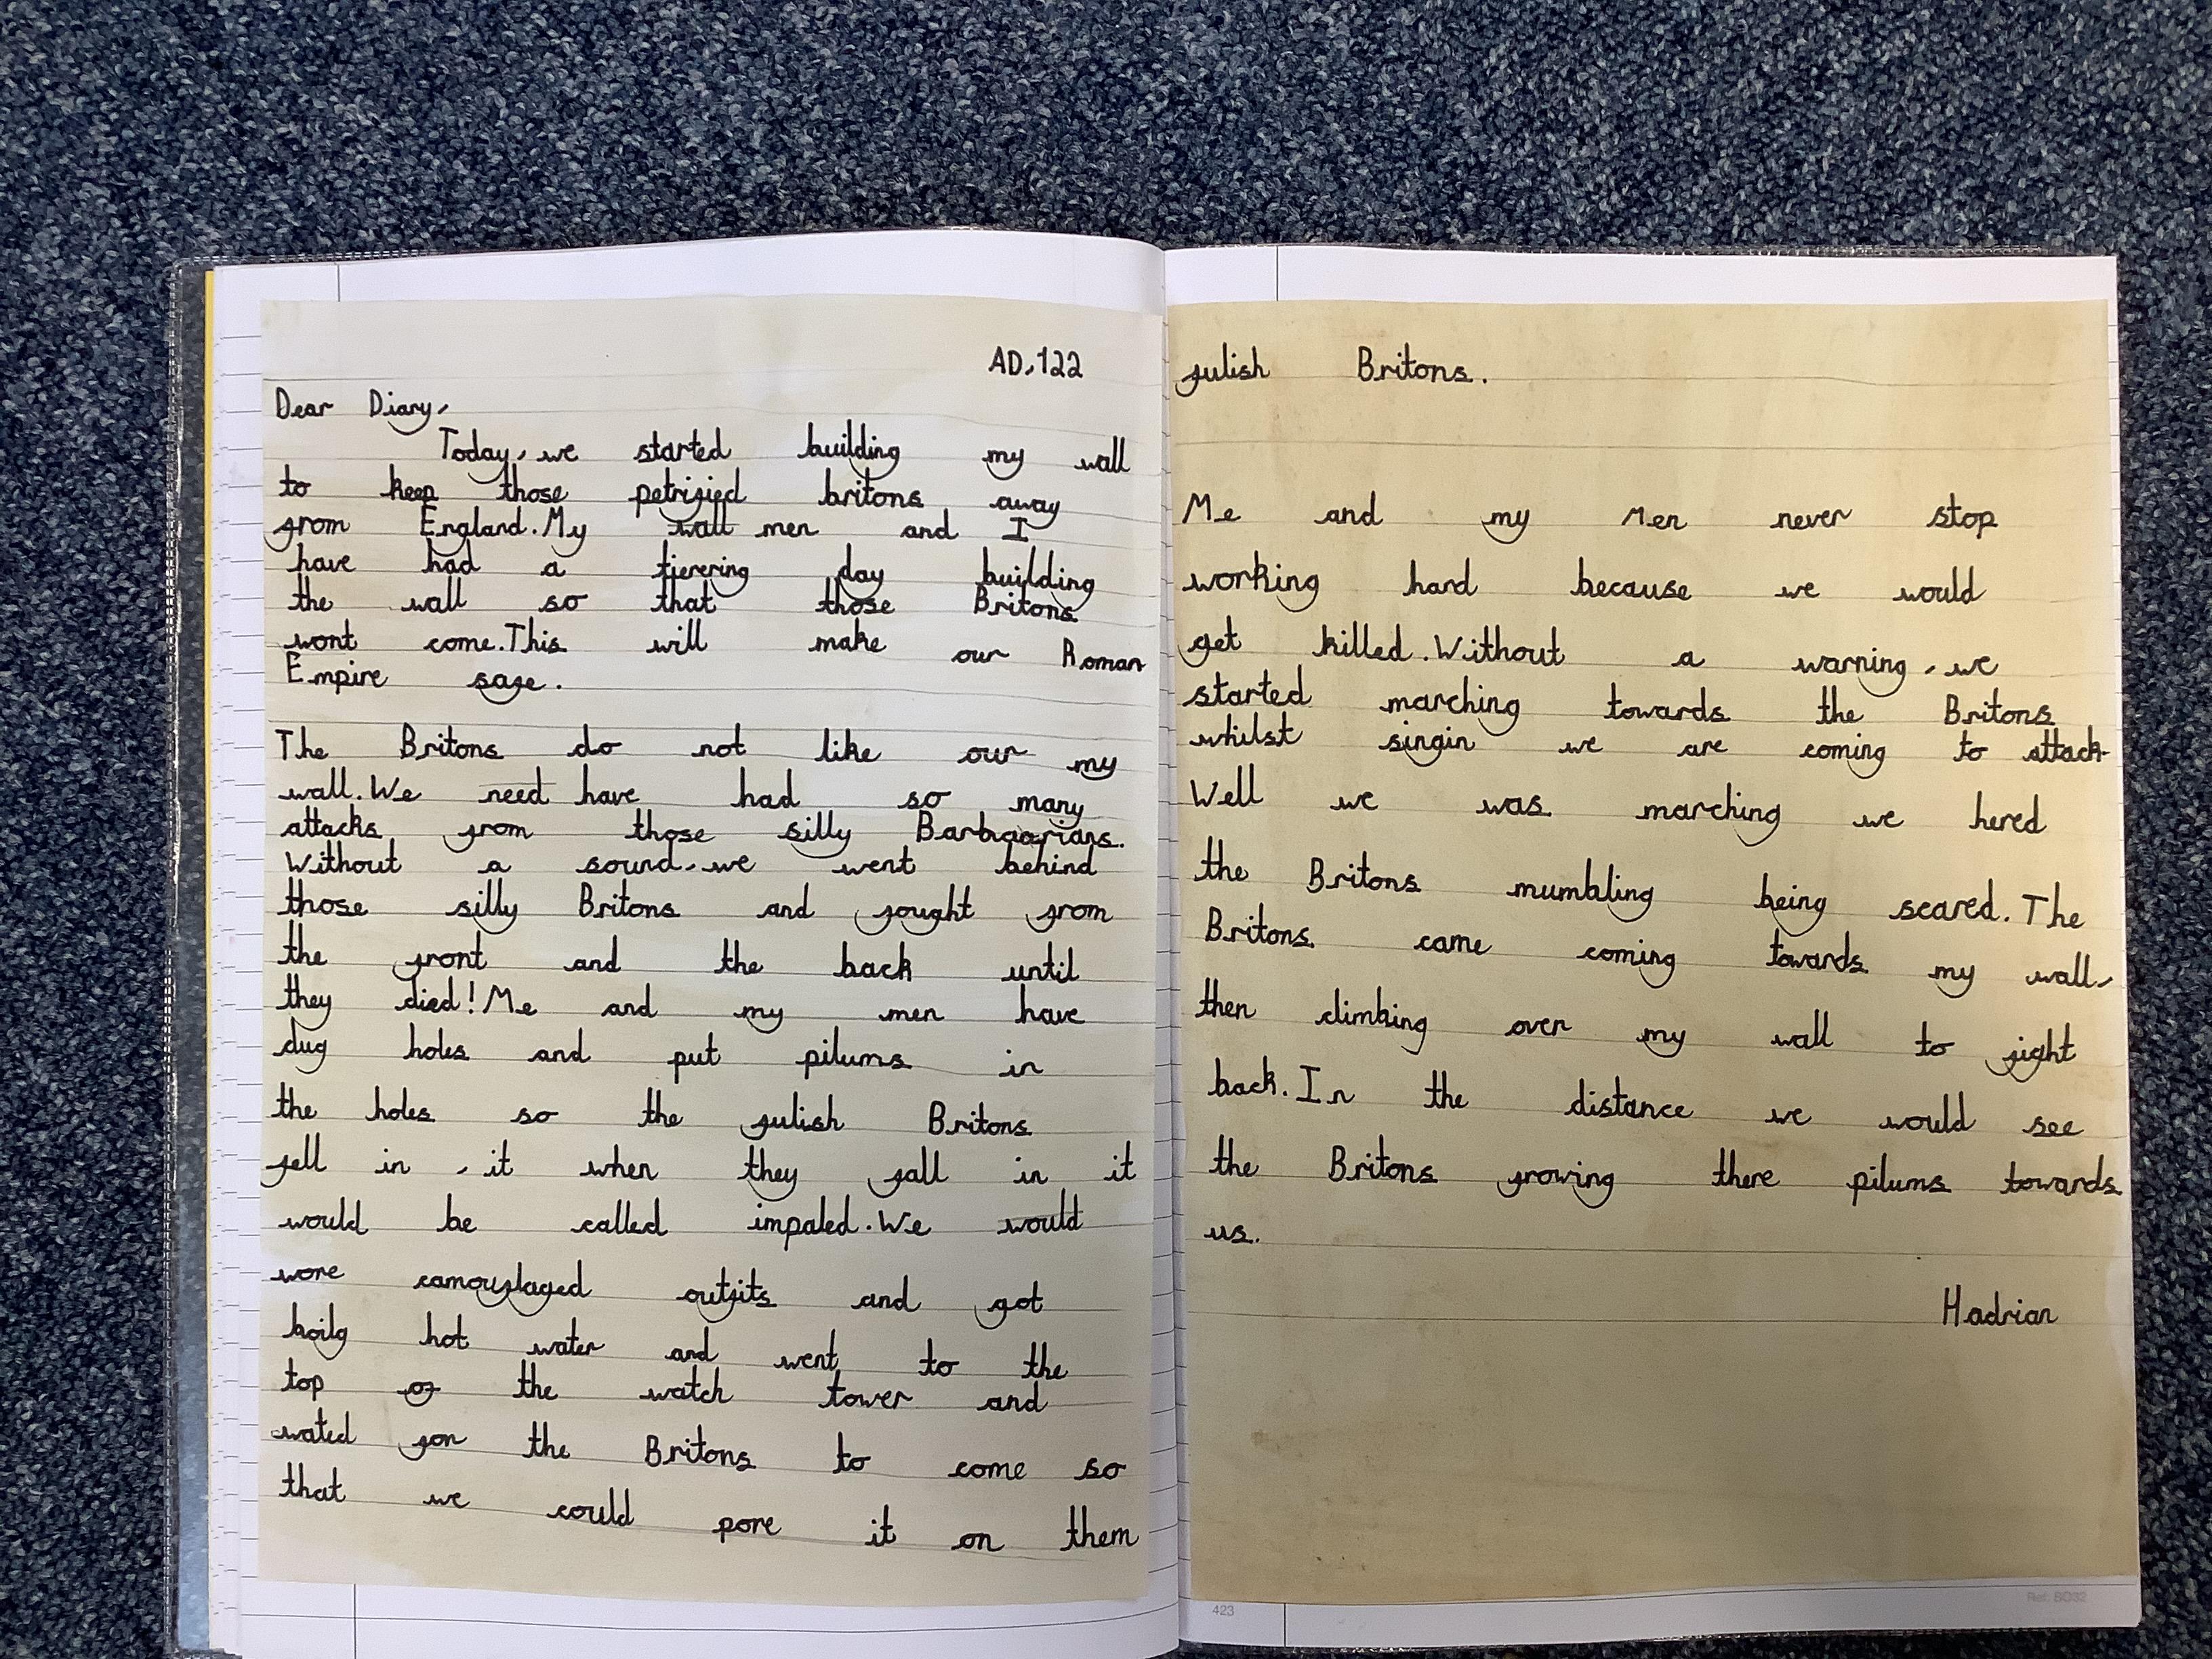 AD,122
Dear Diary,
Today, we started building my wall
to keep those petrified britons away
from England. My wall men and I
have had a tierering day building
the wall so that those Britons
wont come. This will make our Roman
Empire safe.
The Britons do not like our my
wall. We need have had so many
attacks from those silly Barbaarians.
Without a sound, we went behind
those silly Britons and fought from
the front and the back until
they died! Me and my men have
dug holes and put pilums in
the holes so the fulish Britons
fell in , it when they fall in it
would be called impaled. We would
wore camouflaged outfits and got
boilg hot water and went to the
top of the watch tower and
wated for the Britons to come so
that we could pore it on them
fulish Britons.
Me and my Men never stop
working hard because we would
get killed. Without a warning, we
started marching towards the Britons
whilst singin we are coming to attack.
Well we was marching we hered
the Britons mumbling being scared. The
Britons came coming towards my wall,
then climbing over my wall to fight
back. In the distance we would see
the Britons frowing there pilums towards
us.
Hadrian
423
Ref: BO32